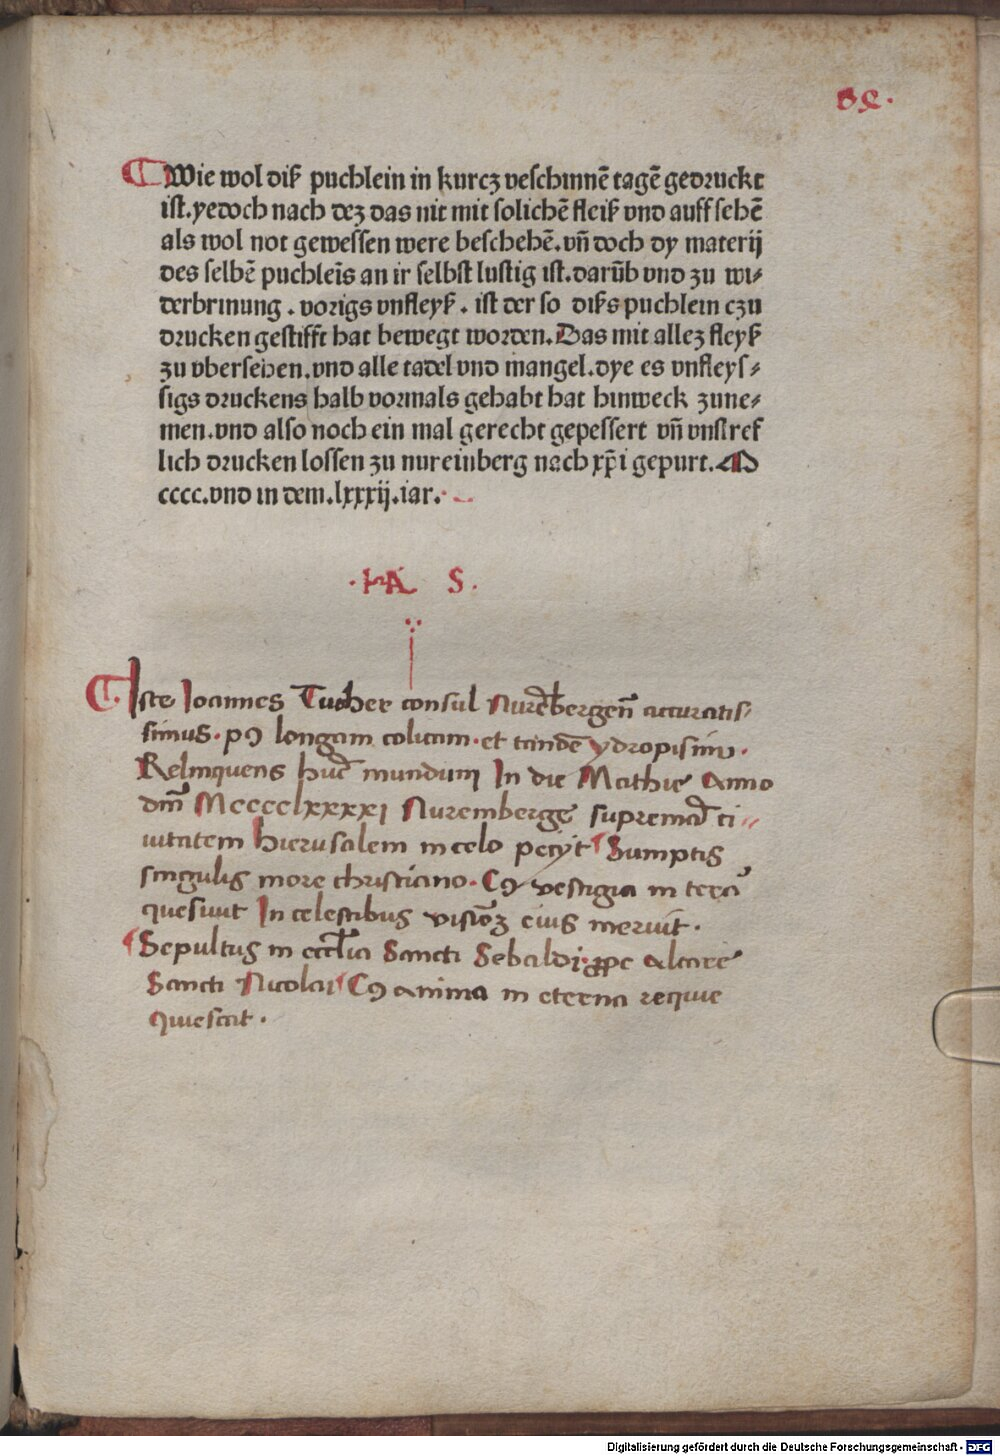 Wie wol diß puchlein in kurcz veschinnē tagē gedruckt
ist. yedoch nach dez das nit mit solichē fleiß vnd auff sehē
als wol not gewessen were beschehē. vñ doch dy materij
des selbē puchleīs an ir selbst lustig ist. darūb vnd zu wi⸗
derbrinung . vorigs vnfleyß . ist der so dißs puchlein czu
drucken gestifft hat bewegt worden. Das mit allez fleyß
zu vbersehen. vnd alle tadel vnd mangel. dye es vnfleys⸗
sigs druckens halb vormals gehabt hat hinweck zune⸗
men. vnd also noch ein mal gerecht gepessert vñ vnstref
lich drucken lossen zu nureinberg nach xp̄i gepurt. M
cccc. vnd in dem. lxxxij. iar.
S.
Iste Joannes Tucher consul Nurēbergeñ accuratis⸗
simus. pꝯ longam colicam. et tandē ydropisim .
Relinquens hūc mundum In die Mathie Anno
dñi Mcccclxxxxi Nuremberge supremā ci⸗
uitatem hierusalem in celo petijt Sumptis
singulis more christiano. Cꝯ vestigia in terā
quesiuit In celestibus visionꝫ eius meruit .
Sepultus in eccl̄ia Sancti Sebaldi. ꝓpe Altare
Sancti Nicolai Cꝯ anima in eterna requie
quiescat .
Digitalisierung gefördert durch die Deutsche Forschungsgemeinschaft - DFG